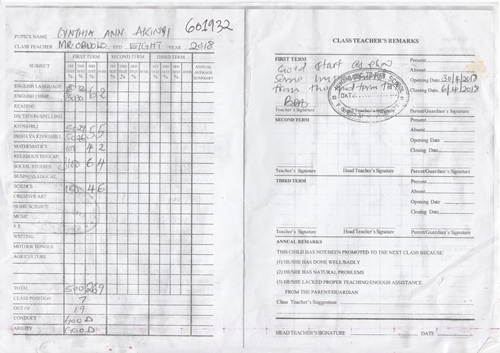 601932
PUPIL'S NAME CYNTHIA ANN AKINYI
CLASS TEACHER MR. OBUOLO STD EIGHT YEAR 2018
SUBJECT FIRST TERM SECOND TERM THIRD TERM ANNUAL AVERAGE SUMMARY
ENGLISH LANGUAGE
ENGLISH COMP. 62
READING
DICTATION/SPELLING
KISWAHILI
INSHA YA KISWAHILI 55
MATHEMATICS 100 42
RELIGIOUS EDUC.
SOCIAL STUDIES 100 64
BUSINESS EDUC.
SCIENCE 100 46
CREATIVE ART
HOME SCIENCE
MUSIC
P.E.
WRITING
MOTHER TONGUE
AGRICULTURE
TOTAL 500 269
CLASS POSITION 7
OUT OF 19
CONDUCT GOOD
ABILITY GOOD
CLASS TEACHER'S REMARKS
FIRST TERM Present
Good start
Absent
Opening Date
Closing Date 6/4/2018
Teacher's Signature Parent/Guardian's Signature
SECOND TERM Present
Absent
Opening Date
Closing Date
Teacher's Signature Head Teacher's Signature Parent/Guardian's Signature
THIRD TERM Present
Absent
Opening Date
Closing Date
Teacher's Signature Head Teacher's Signature Parent/Guardian's Signature
ANNUAL REMARKS
THIS CHILD HAS NOT BEEN PROMOTED TO THE NEXT CLASS BECAUSE:
(1) HE/SHE HAS DONE WELL/BADLY
(2) HE/SHE HAS NATURAL PROBLEMS
(3) HE/SHE LACKED PROPER TEACHING/ENOUGH ASSISTANCE
FROM THE PARENT/GUARDIAN
Class Teacher's Suggestion
HEAD TEACHER'S SIGNATURE DATE